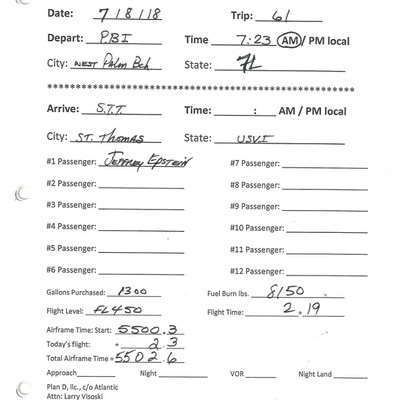 Date: 7/8/18 Trip: 61
Depart: PBI Time 7:23 AM / PM local
City: West Palm Bch State: FL
********************************************************
Arrive: S.T.T. Time: : AM / PM local
City: ST. Thomas State: USVI
#1 Passenger: Jeffrey Epstein #7 Passenger:
#2 Passenger: #8 Passenger:
#3 Passenger: #9 Passenger:
#4 Passenger: #10 Passenger:
#5 Passenger: #11 Passenger:
#6 Passenger: #12 Passenger:
Gallons Purchased: 1300 Fuel Burn lbs. 8150
Flight Level: FL450 Flight Time: 2.19
Airframe Time: Start: 5500.3
Today's flight: + 2.3
Total Airframe Time = 5502.6
Approach Night VOR Night Land
Plan D, llc., c/o Atlantic
Attn: Larry Visoski